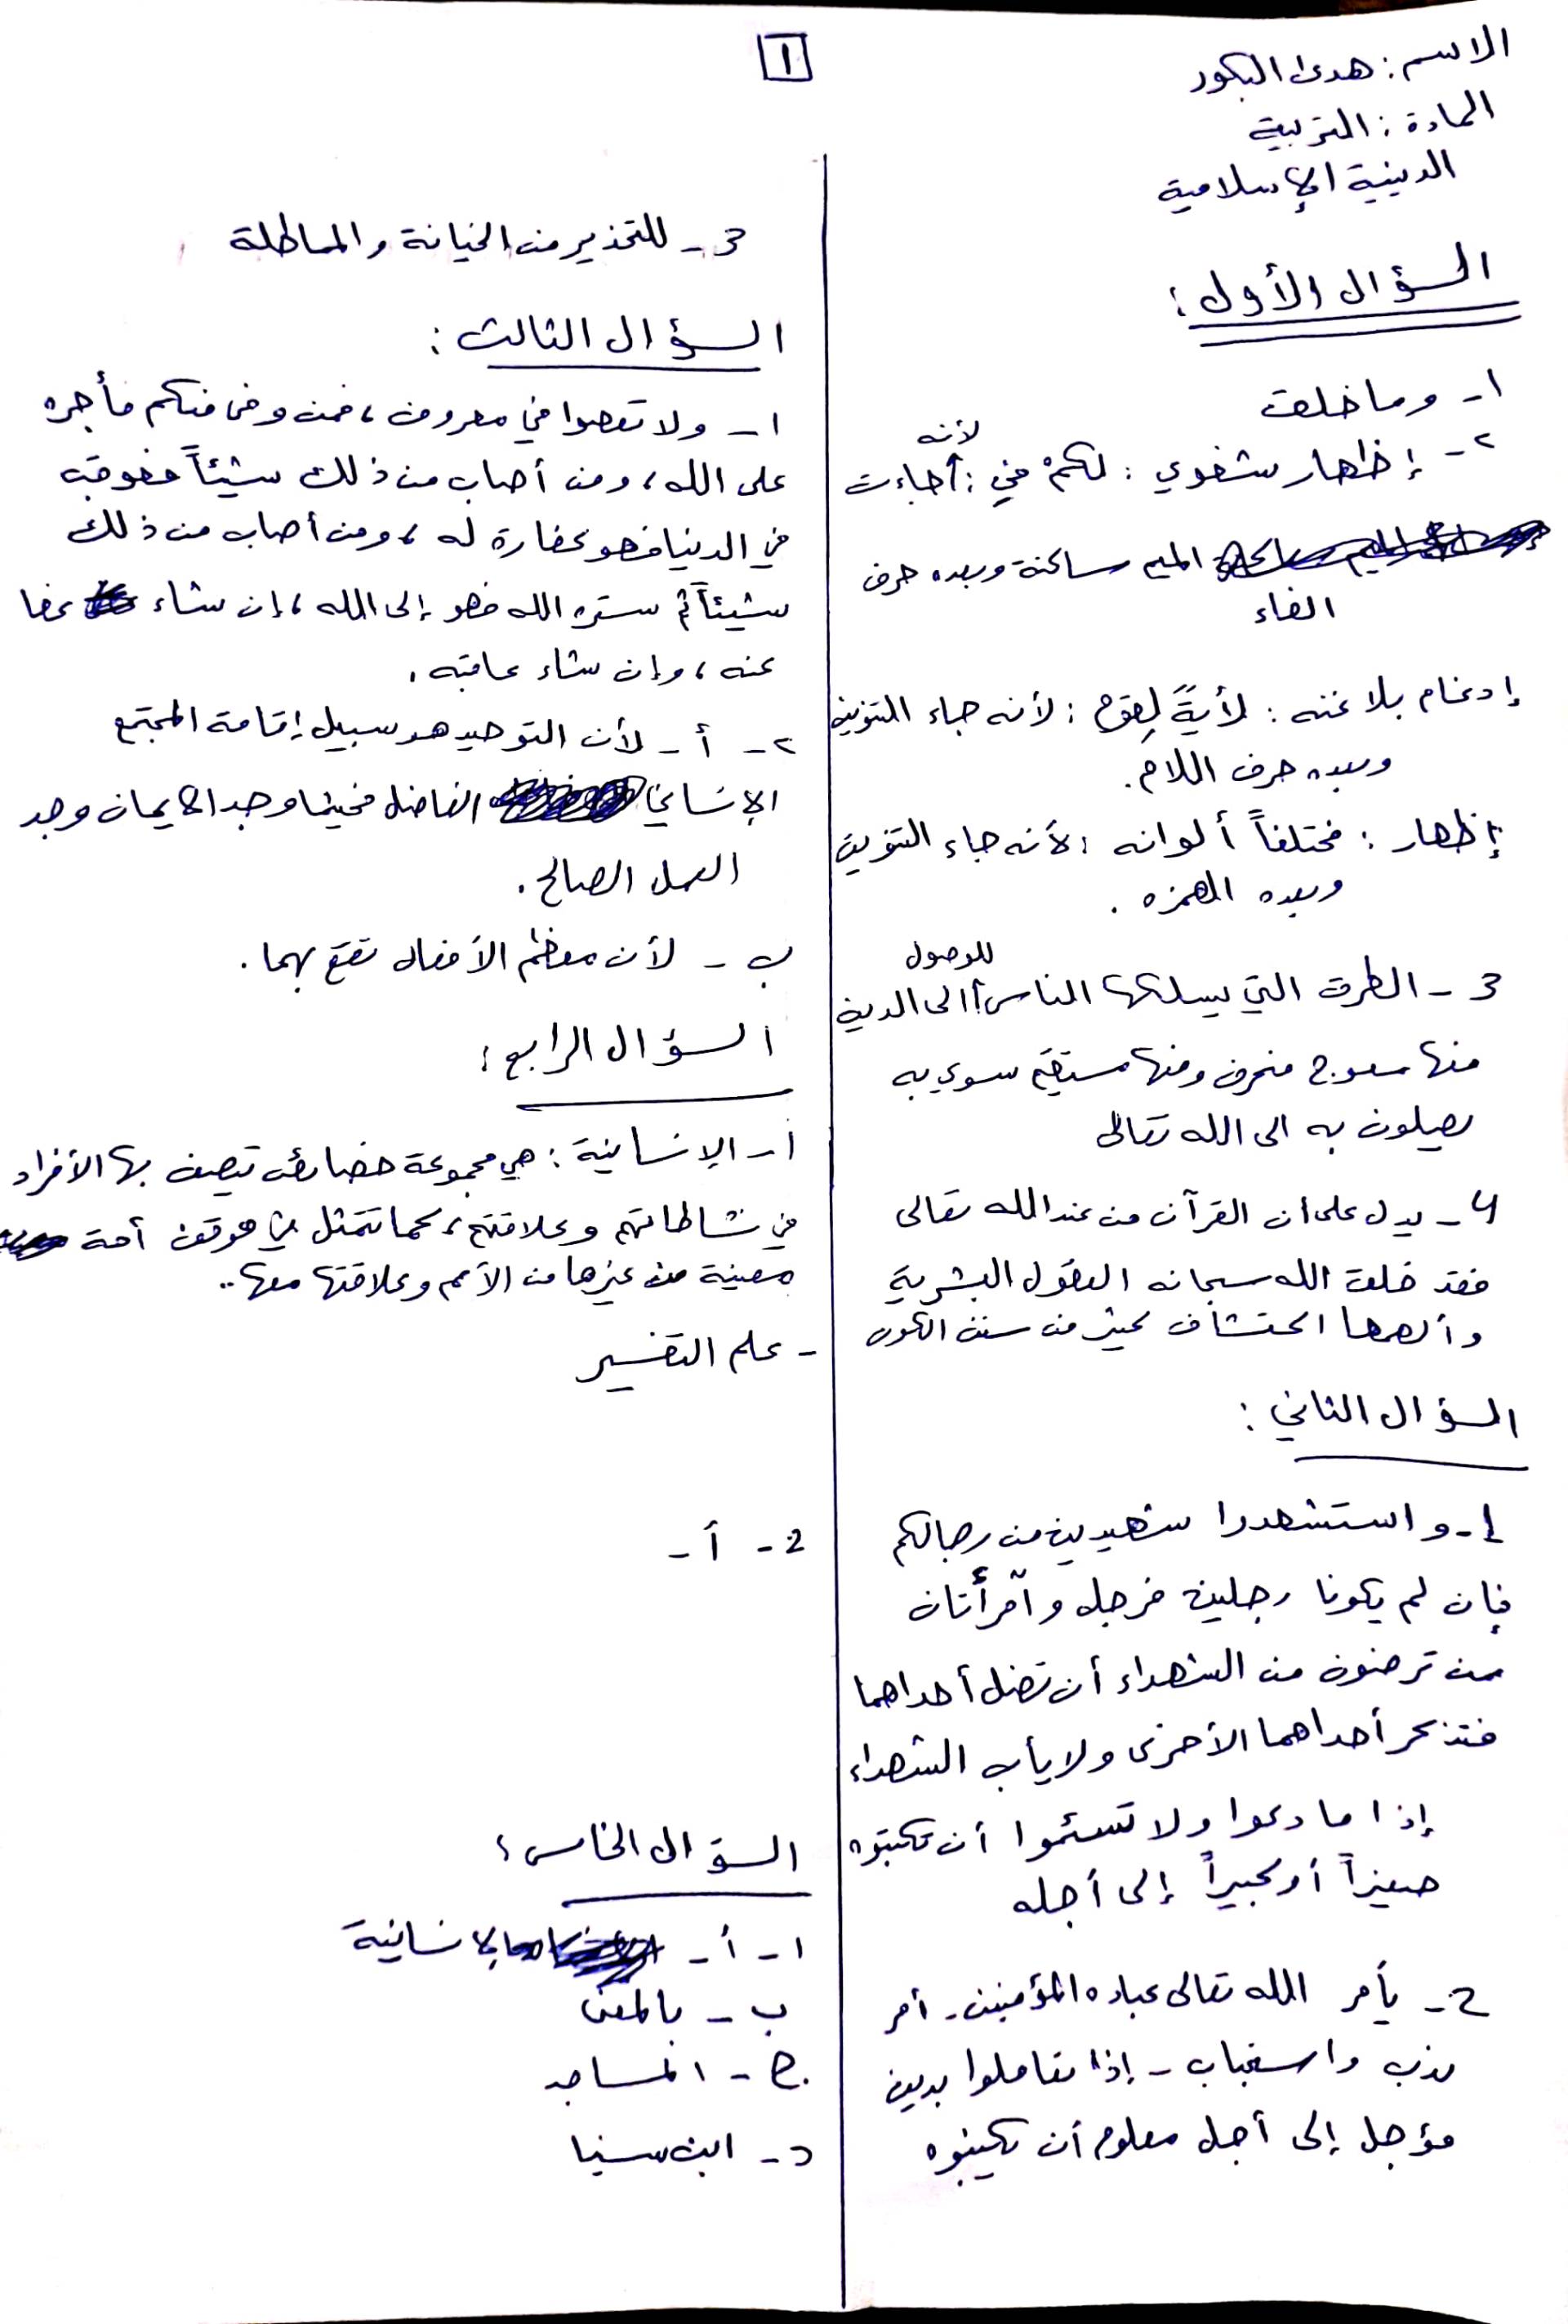 الاسم: هدى البكور
المادة: التربية
الدينية الإسلامية
١
السؤال الأول:
١- وما خلقت
٢- إظهار شفوي: لكمْ في: لأنه جاءت
الميم ساكنة وبعده حرف
الفاء
إدغام بلا غنه: لأيةً لِقوم: لأنه جاء التنوين
وبعده حرف اللام.
إظهار: مختلفاً ألوانه: لأنه جاء التنوين
وبعده الهمزه.
3- الطرق التي يسلكها الناس للوصول الى الدين
منها معوج منحرف ومنها مستقيم سوي به
يصلون به الى الله تعالى
4- يدل على أن القرآن من عند الله تعالى
فقد خلق الله سبحانه العقول البشرية
وألهمها اكتشاف كثير من سنن الكون
السؤال الثاني:
1- و استشهدوا شهيدين من رجالكم
فإن لم يكونا رجلين فرجل وأمرأتان
ممن ترضون من الشهداء أن تضل أحداهما
فتذكر أحداهما الأخرى ولا يأب الشهداء
إذا ما دعوا ولا تسئموا أن تكتبوه
صغيراً أو كبيراً إلى أجله
2- يأمر الله تعالى عباده المؤمنين - أمر
ندب واستحباب - إذا تعاملوا بدين
مؤجل إلى أجل معلوم أن يكتبوه
3- للتحذير من الخيانة والمماطلة
السؤال الثالث:
١- ولا تعصوا في معروف، فمن وفى منكم فأجره
على الله، ومن أصاب من ذلك شيئاً فعوقب
في الدنيا فهو كفارة له، ومن أصاب من ذلك
شيئاً ثم ستره الله فهو إلى الله، إن شاء عفا
عنه، وإن شاء عاقبه.
٢- أ- لأن التوحيد هو سبيل إقامة المجتمع
الإنساني الفاضل فحيثما وجد الايمان وجد
العمل الصالح.
ب- لأن معظم الأفعال تقع بهما.
السؤال الرابع:
١- الإنسانية: هي مجموعة خصائص تتصف بها الأفراد
في نشاطاتهم وعلاقتهم، كما تتمثل في موقف أمة
معينة من غيرها من الأمم وعلاقتها معها..
- علم التفسير
2- أ-
السؤال الخامس:
١- أ- بالإنسانية
ب- بالمعنى
ج- المساجد
د- ابن سينا